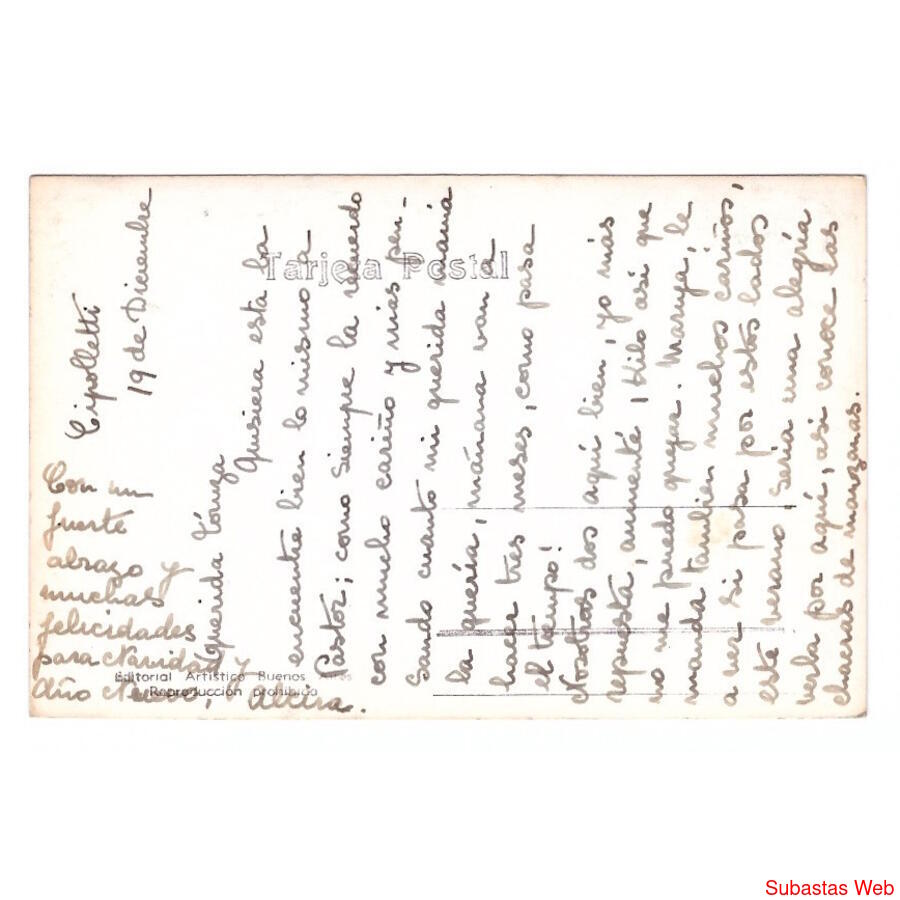 Tarjeta Postal
Cipolletti
19 de Diciembre
Querida
Quisiera esta la
encuentre bien lo mismo a
Pastor; como siempre la recuerdo
con mucho cariño y más pen-
sando cuanto mi querida mamá
la quería, mañana van a
hacer tres meses, como pasa
el tiempo!
Nosotros dos aquí bien, yo más
repuesta, aumenté 1 kilo asi que
no me puedo quejar. Maruja le
manda tambien muchos cariños,
a ver si pasa por estos lados
este verano seria una alegría
verla por aquí, asi conoce las
chacras de manzanas.
Con un
fuerte
abrazo y
muchas
felicidades
para Navidad y
Año Nuevo, Alcira.
Editorial Artistico Buenos Aires
Reproducción prohibida
Subastas Web